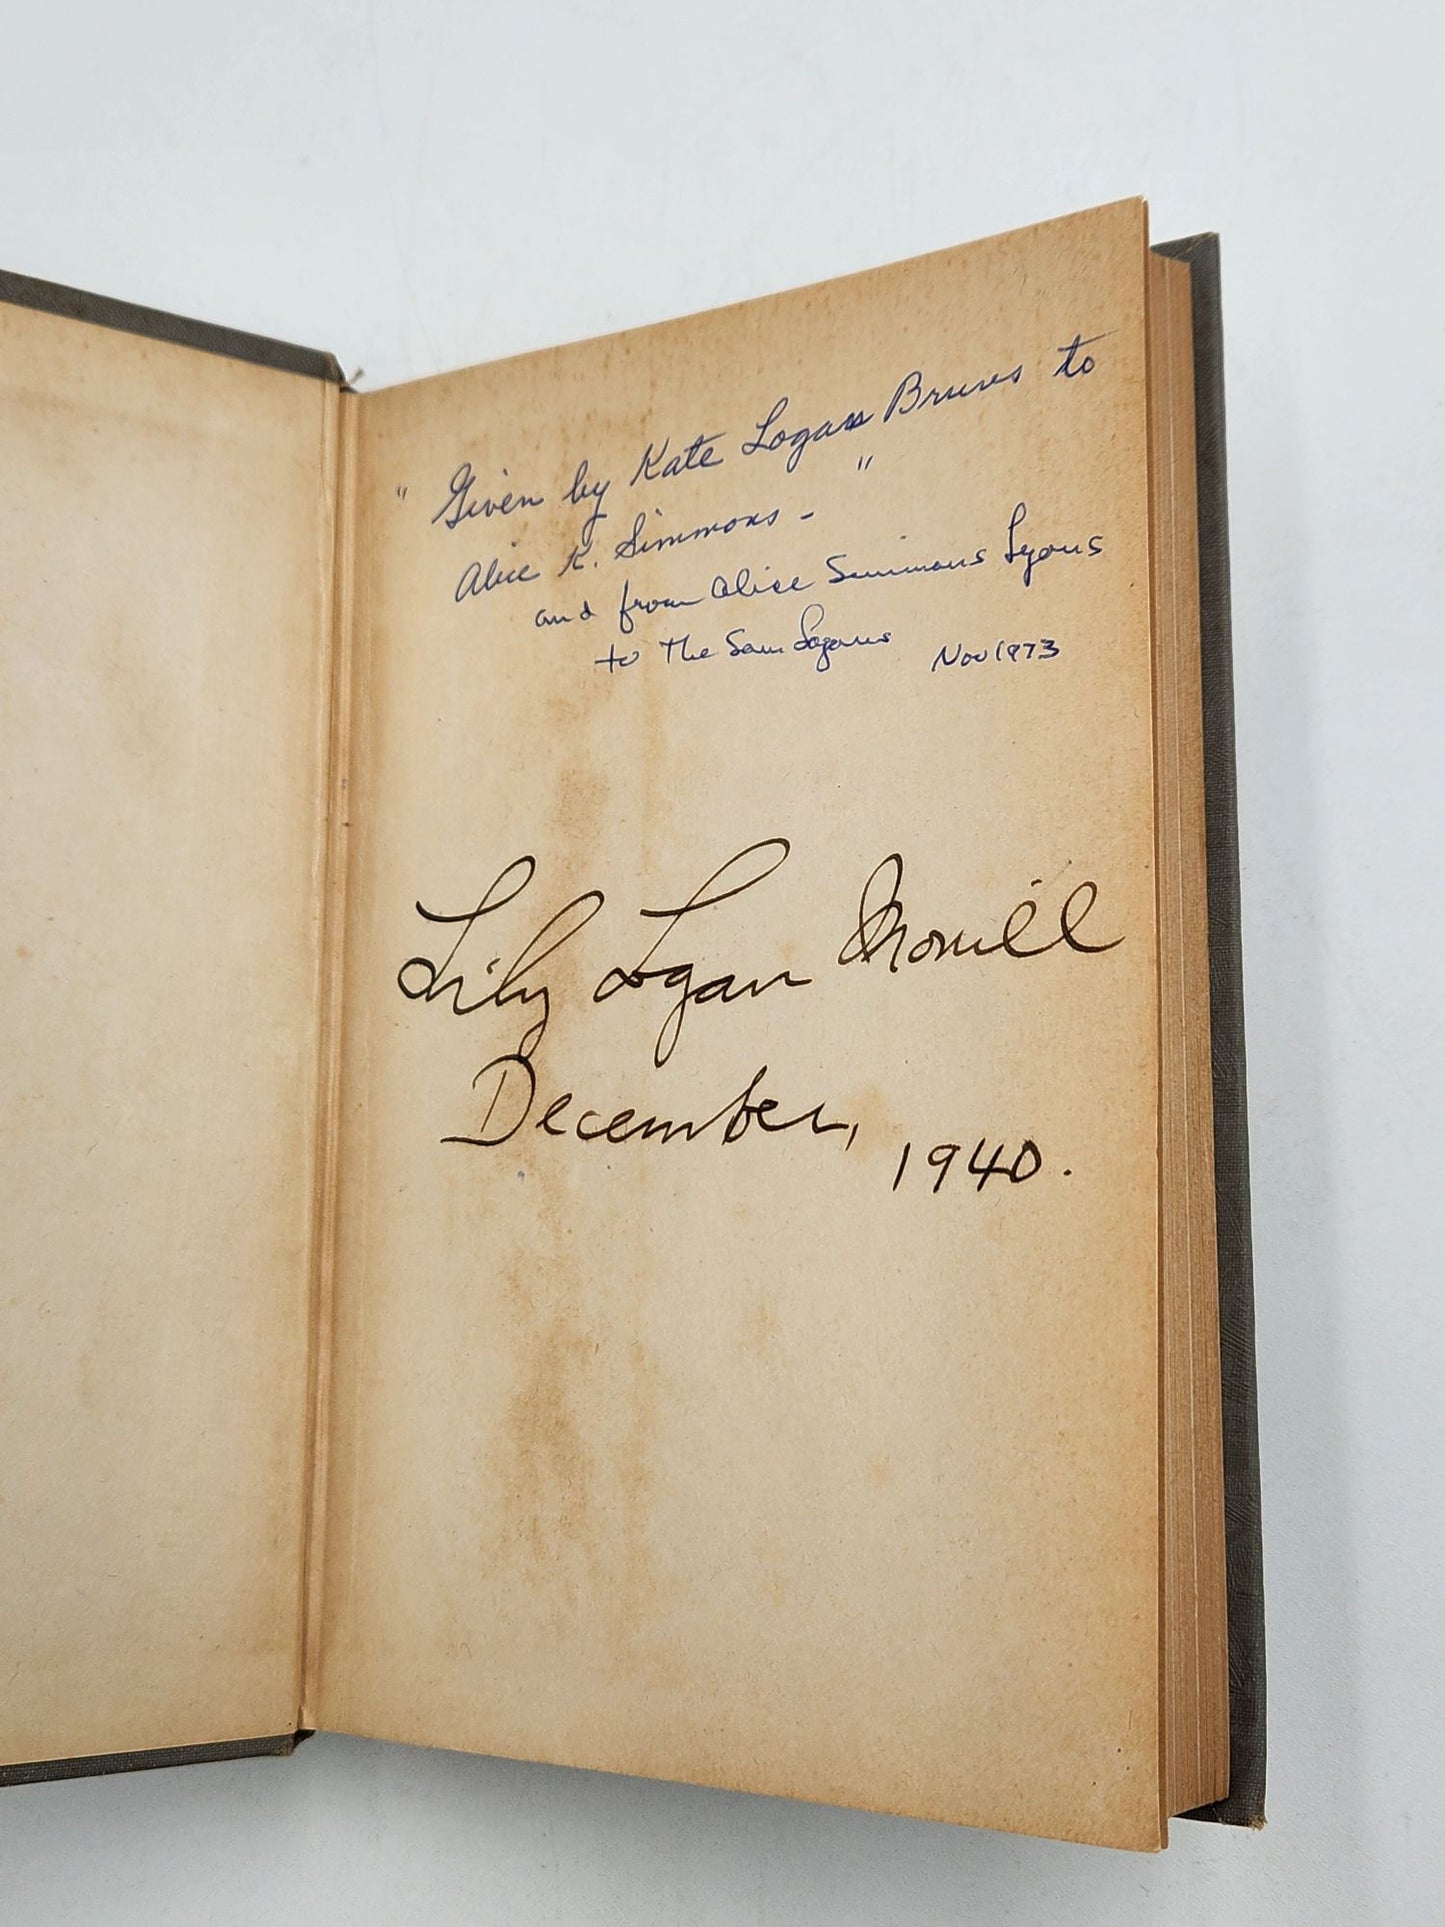 " Given by Kate Logan Brunes to
Alice K. Simmons - "
and from Alice Simmons Lyons
to The Sam Logans Nov 1973
Lily Logan Morrill
December, 1940.